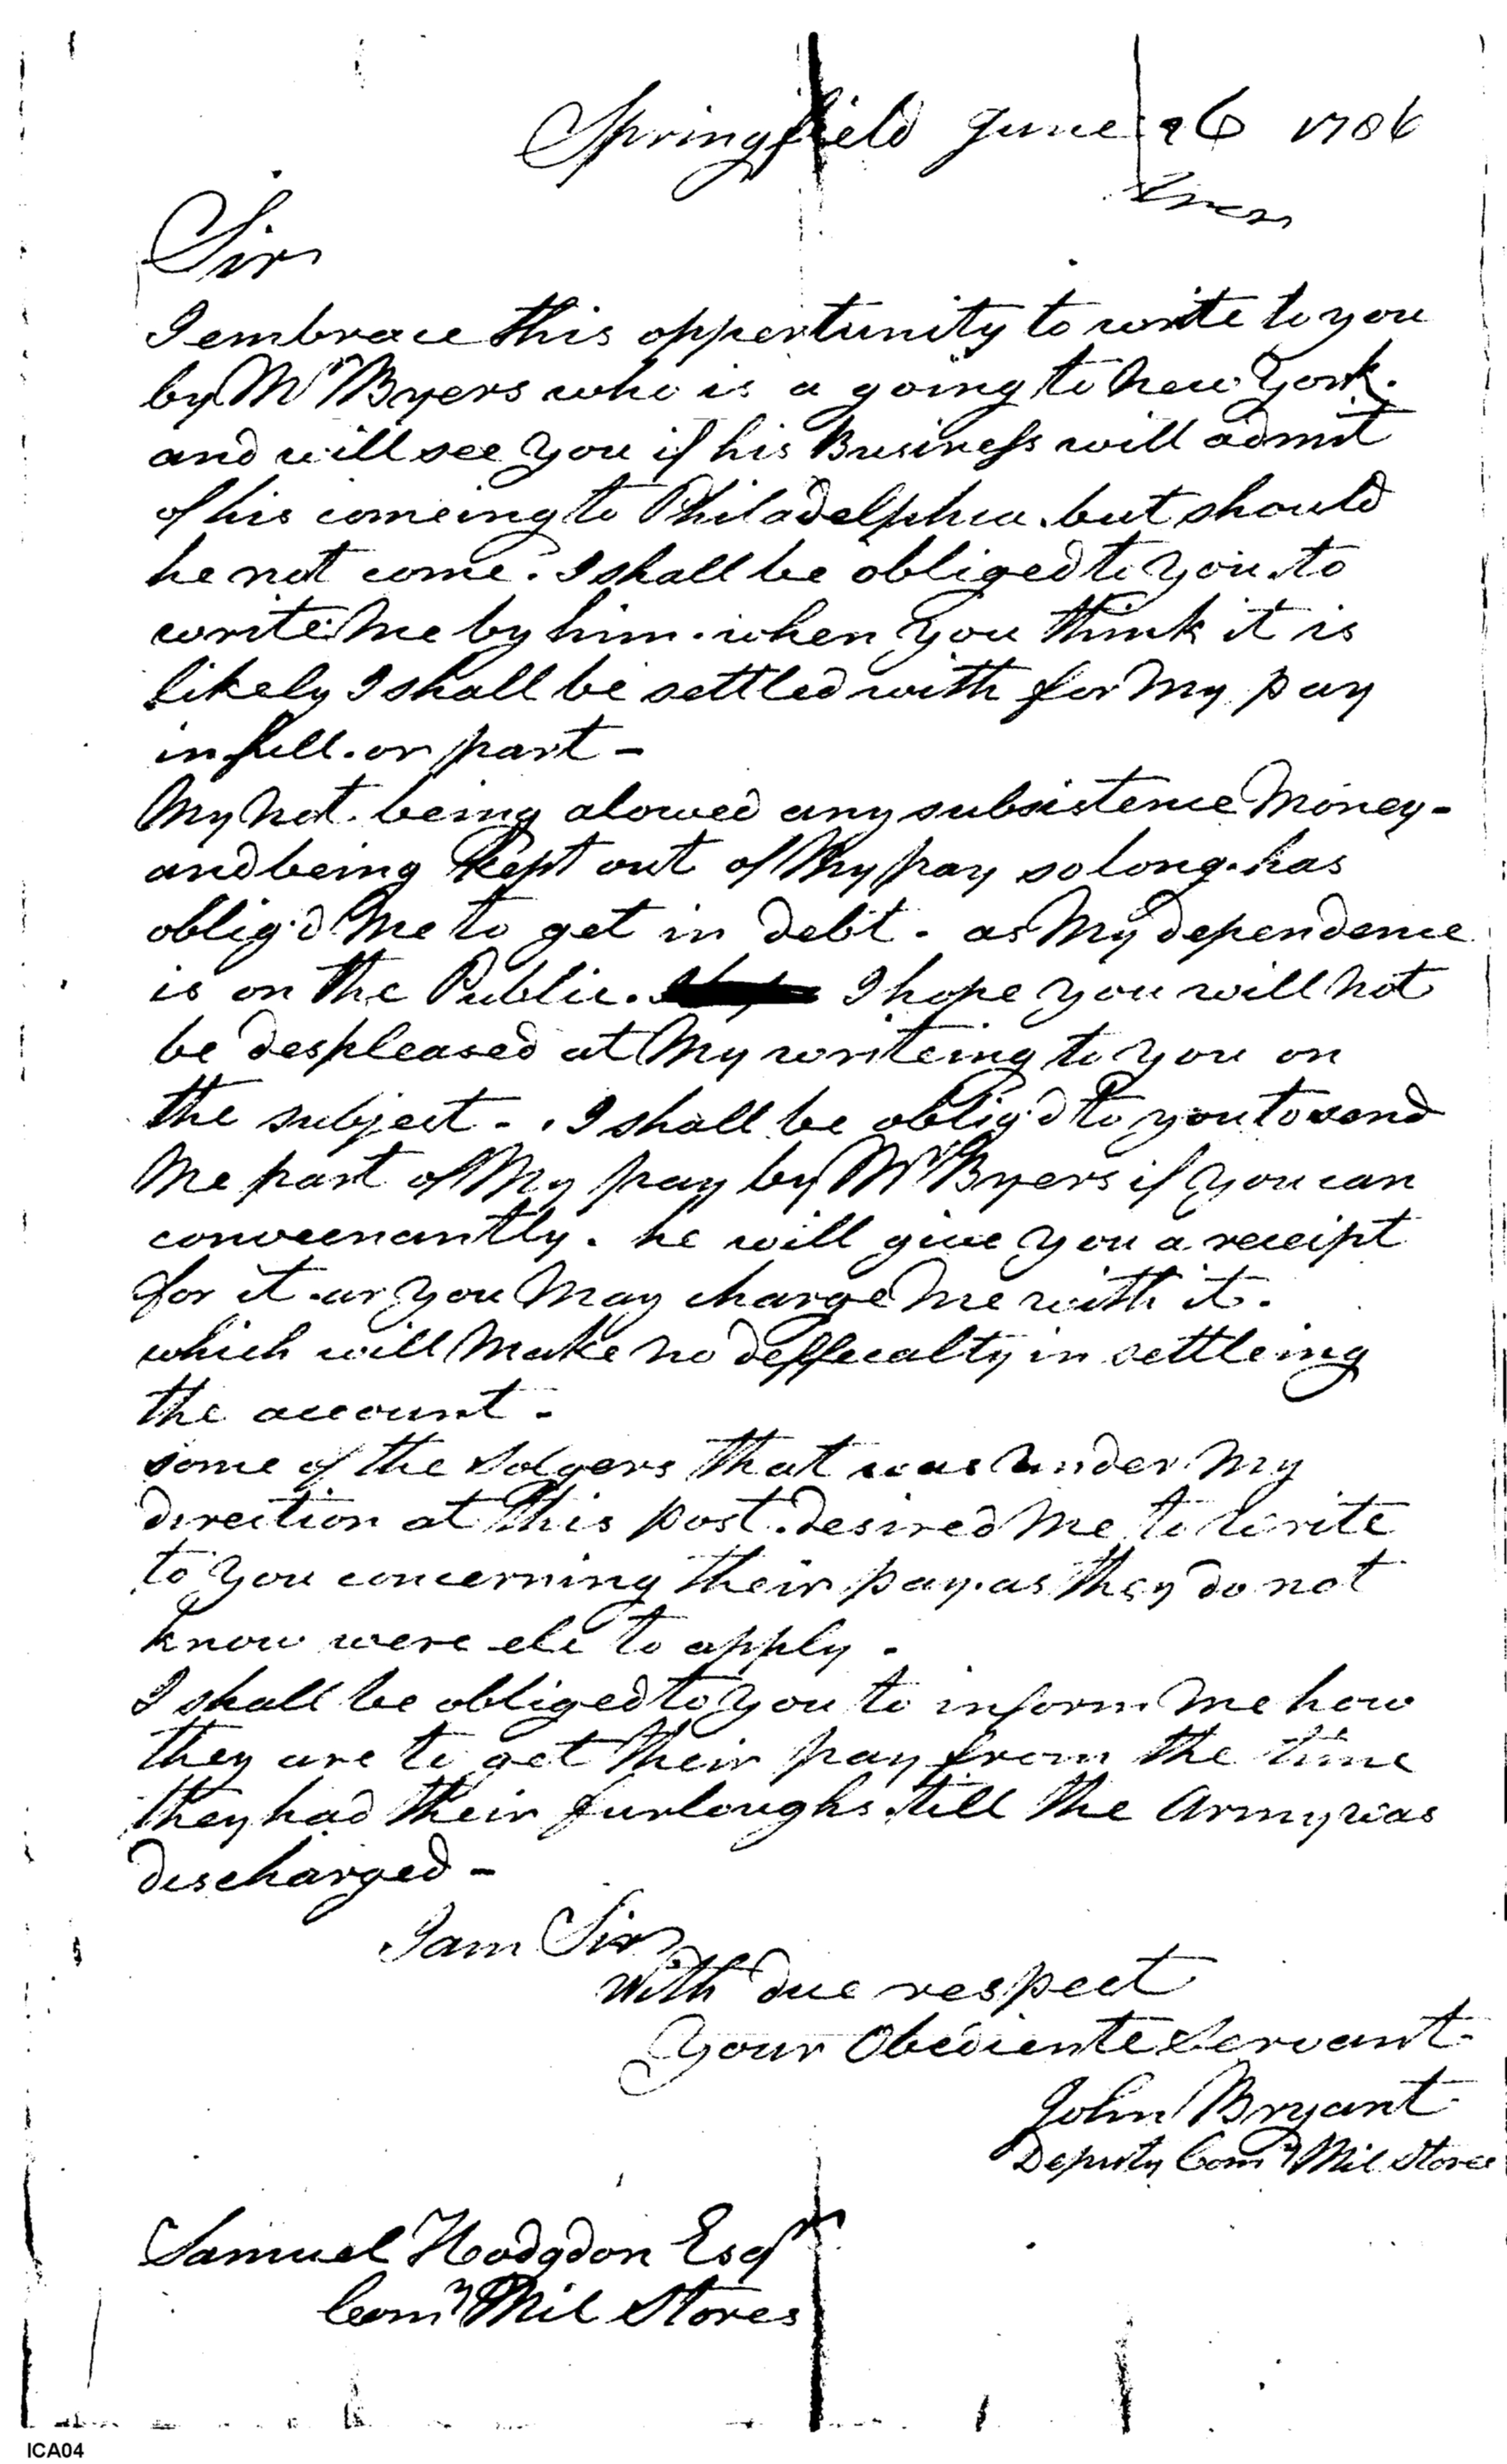 Springfield June 26 1786
Sir
I embrace this oppertunity to write to you
by Mr Byers who is a going to New York.
and will see you if his Business will admit
of his comeing to Philadelphia. but should
he not come. I shall be obliged to you. to
write Me by him. when you think it is
likely I shall be settled with for My pay
in full. or part -
My Not. being alowed any subsistence Money -
and being kept out of My pay so long. has
oblig'd Me to get in debt. as My dependence
is on the Public. I hope you will Not
be despleased at My writeing to you on
the subject -. I shall be oblig'd to you to send
Me part of My pay by Mr Byers if you can
conveenantly. he will give you a receipt
for it. or you May charge Me with it.
which will Make No deffecalty in settleing
the account -
some of the Solgers that was under My
direction at this post. desired Me to write
to you concerning their pay. as they do not
know were els to apply.
I shall be obliged to you to inform Me how
they are to get their pay from the time
they had their furloughs. till the Army was
discharged -
I am Sir
With due respect
Your Obediente Servant
John Bryant
Deputy Comy Mil Stores
Samuel Hodgdon Esqr
Comy Mil Stores
ICA04